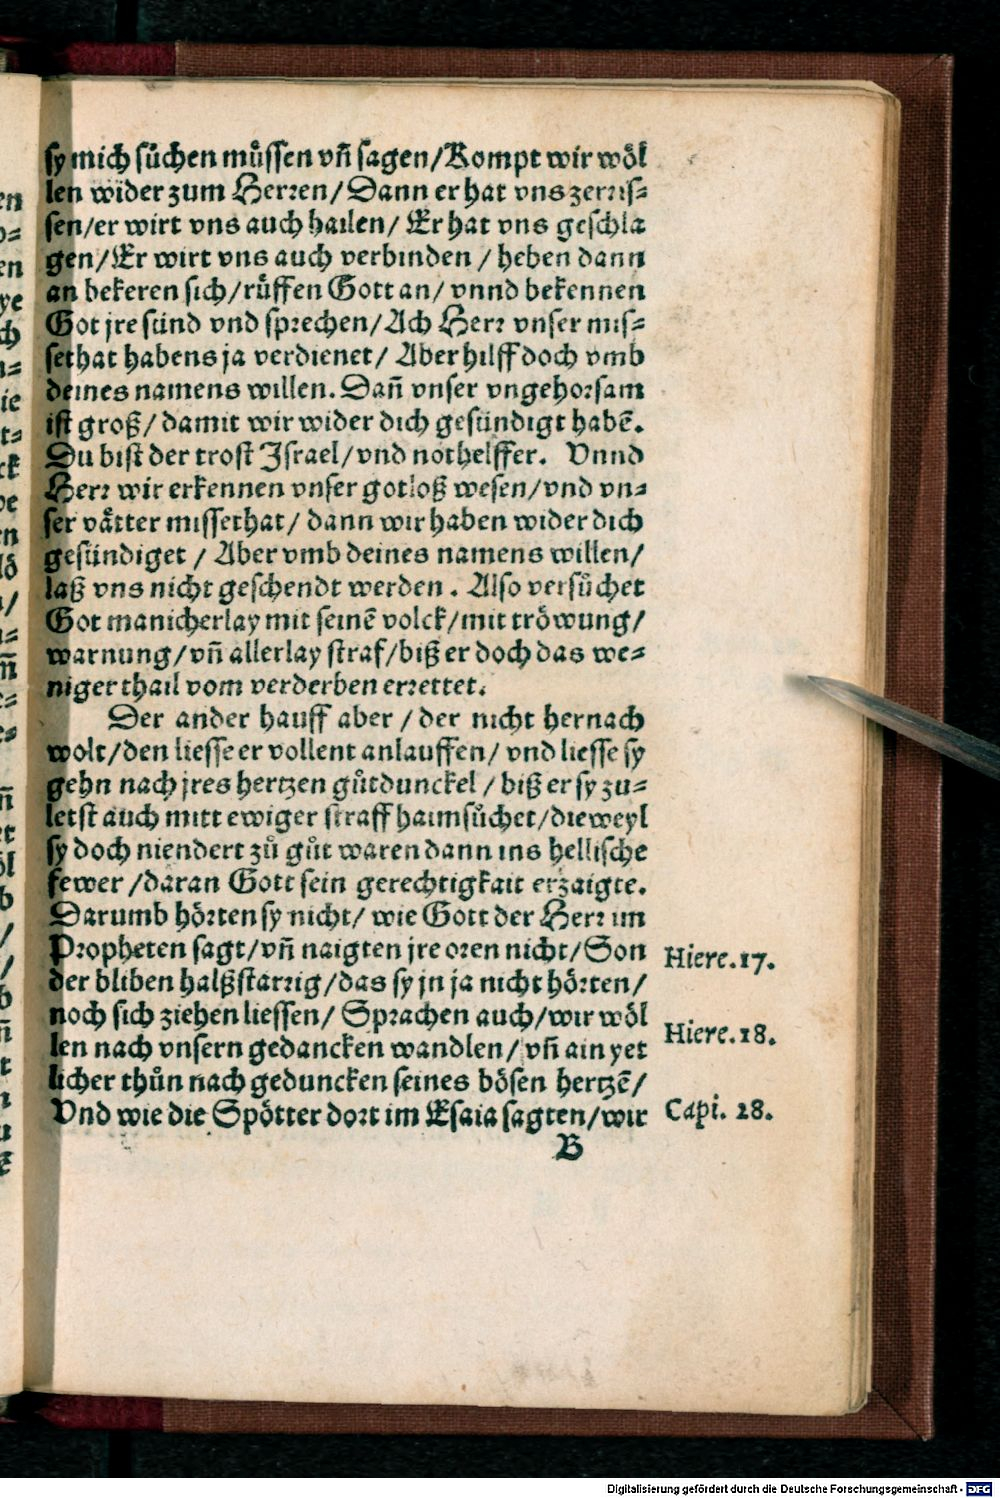 sy mich sůchen můssen vñ sagen/Kompt wir wöl
len wider zum Herren/Dann er hat vns zerris-
sen/er wirt vns auch hailen/ Er hat vns geschla
gen/Er wirt vns auch verbinden / heben dann
an bekeren sich/růffen Gott an/ vnnd bekennen
Got jre sünd vnd sprechen/Ach Herr vnser mis-
sethat habens ja verdienet/ Aber hilff doch vmb
deines namens willen. Dañ vnser vngehorsam
ist groß/ damit wir wider dich gesündigt habẽ.
Du bist der trost Israel/vnd nothelffer. Vnnd
Herr wir erkennen vnser gotloß wesen/vnd vn-
ser våtter missethat/ dann wir haben wider dich
gesündiget / Aber vmb deines namens willen/
laß vns nicht geschendt werden . Also versůchet
Got manicherlay mit seinẽ volck/mit tröwung/
warnung/vñ allerlay straf/biß er doch das we-
niger thail vom verderben errettet.
Der ander hauff aber / der nicht hernach
wolt/den liesse er vollent anlauffen/ vnd liesse sy
gehn nach jres hertzen gůtdunckel / biß er sy zu-
letst auch mitt ewiger straff haimsůchet/dieweyl
sy doch niendert zů gůt waren dann ins hellische
fewer /daran Gott sein gerechtigkait erzaigte.
Darumb hörten sy nicht/ wie Gott der Herr im
Propheten sagt/vñ naigten jre oren nicht/Son
der bliben halßstarrig/das sy jn ja nicht hörten/
noch sich ziehen liessen/ Sprachen auch/wir wöl
len nach vnsern gedancken wandlen/ vñ ain yet
licher thůn nach geduncken seines bösen hertzẽ/
Vnd wie die Spötter dort im Esaia sagten/wir
B
Hiere.17.
Hiere.18.
Capi. 28.
Digitalisierung gefördert durch die Deutsche Forschungsgemeinschaft - DFG